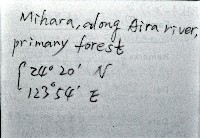 Mihara, along Aira river,
primary forest
24° 20' N
123° 54' E